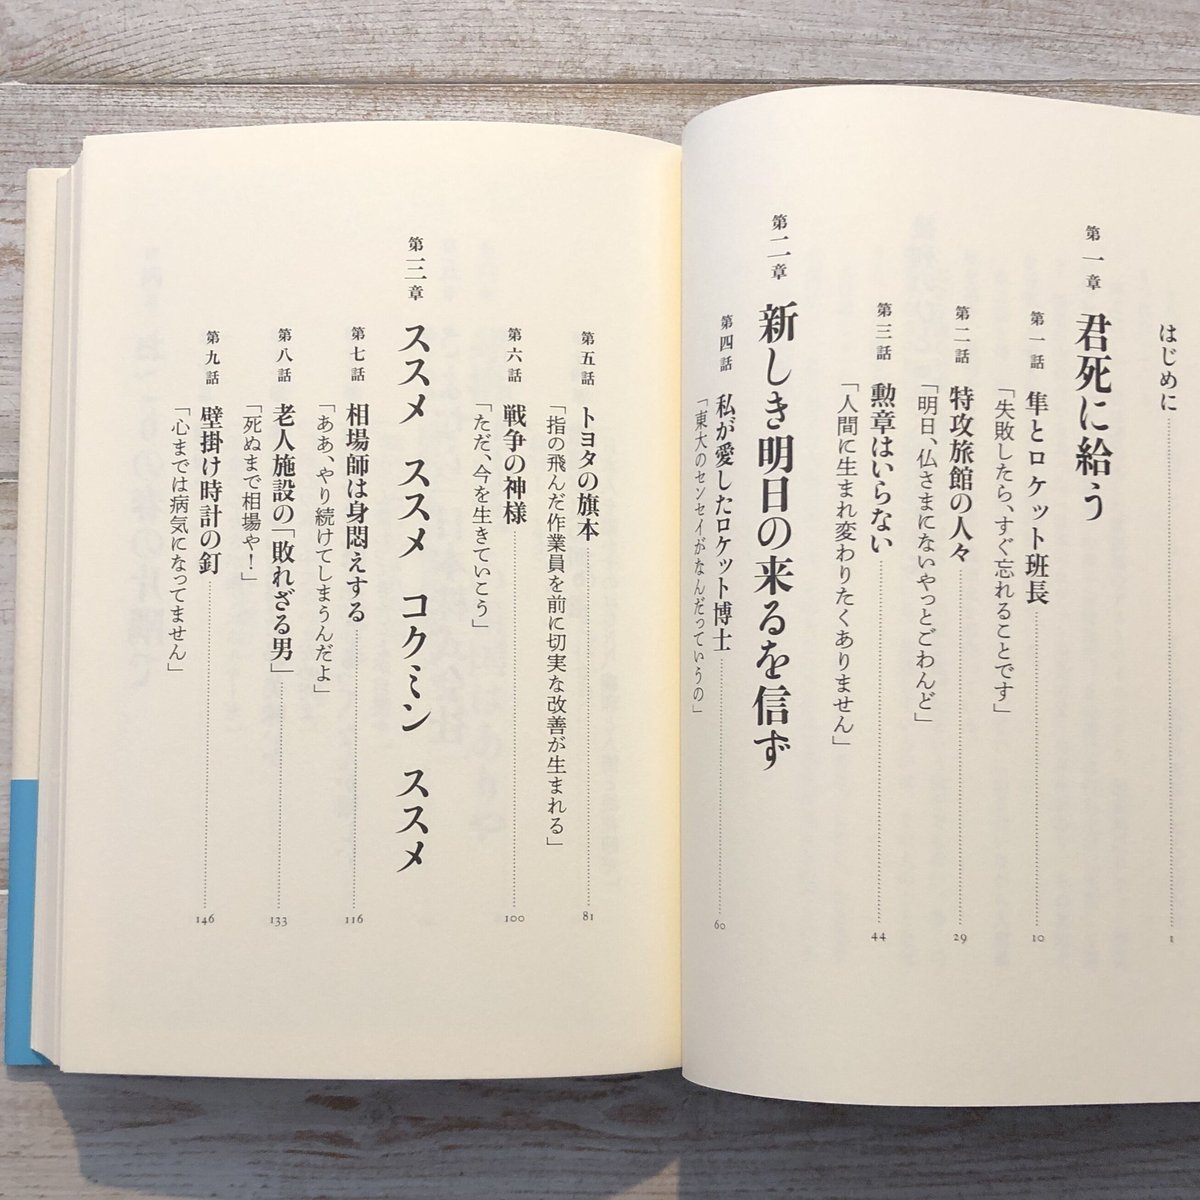 はじめに 1
第一章 君死に給う
第一話 隼とロケット班長 10
「失敗したら、すぐ忘れることです」
第二話 特攻旅館の人々 29
「明日、仏さまにないやっとごわんど」
第三話 勲章はいらない 44
「人間に生まれ変わりたくありません」
第二章 新しき明日の来るを信ず
第四話 私が愛したロケット博士 60
「東大のセンセイがなんだっていうの」
第五話 トヨタの旗本 81
「指の飛んだ作業員を前に切実な改善が生まれる」
第六話 戦争の神様 100
「ただ、今を生きていこう」
第三章 ススメ ススメ コクミン ススメ
第七話 相場師は身悶えする 116
「ああ、やり続けてしまうんだよ」
第八話 老人施設の「敗れざる男」 133
「死ぬまで相場や!」
第九話 壁掛け時計の釘 146
「心までは病気になってません」